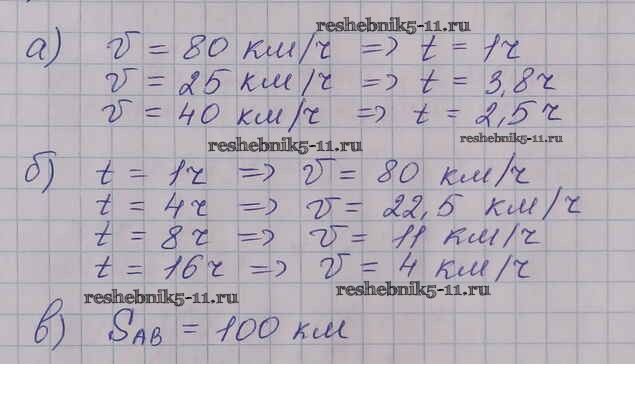 reshebnik5-11.ru
а) v = 80 км/ч => t = 1ч
v = 25 км/ч => t = 3,8ч
v = 40 км/ч => t = 2,5ч
reshebnik5-11.ru
reshebnik5-11.ru
б) t = 1ч => v = 80 км/ч
t = 4ч => v = 22,5 км/ч
t = 8ч => v = 11 км/ч
t = 16ч => v = 4 км/ч
reshebnik5-11.ru
reshebnik5-11.ru
в) SАВ = 100 км